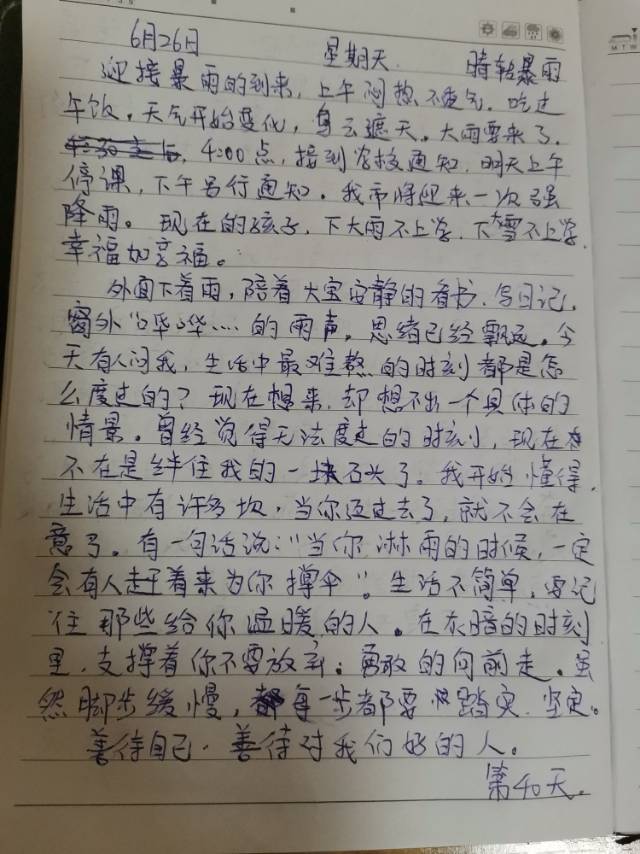 6月26日 星期天. 晴转暴雨
迎接暴雨的到来，上午闷热不透气。吃过
午饭，天气开始变化，乌云遮天。大雨要来了.
4:00点，接到学校通知，明天上午
停课，下午另行通知。我市将迎来一次强
降雨。现在的孩子，下大雨不上学.下大雪不上学.
幸福加幸福。
外面下着雨，陪着大宝安静的看书.写日记.
窗外"哗哗……的雨声，思绪已经飘远。今
天有人问我，生活中最难熬的时刻都是怎
么度过的？现在想来，却想不出一个具体的
情景。曾经觉得无法度过的时刻，现在
不在是绊住我的一块石头了。我开始懂得.
生活中有许多坎.当你迈过去了，就不会在
意了。有一句话说："当你淋雨的时候，一定
会有人赶着来为你撑伞"。生活不简单，要记
住那些给你温暖的人。在灰暗的时刻
里，支撑着你不要放弃；勇敢的向前走。虽
然脚步缓慢，每一步都要踏实.坚定。
善待自己.善待对我们好的人。
第40天.